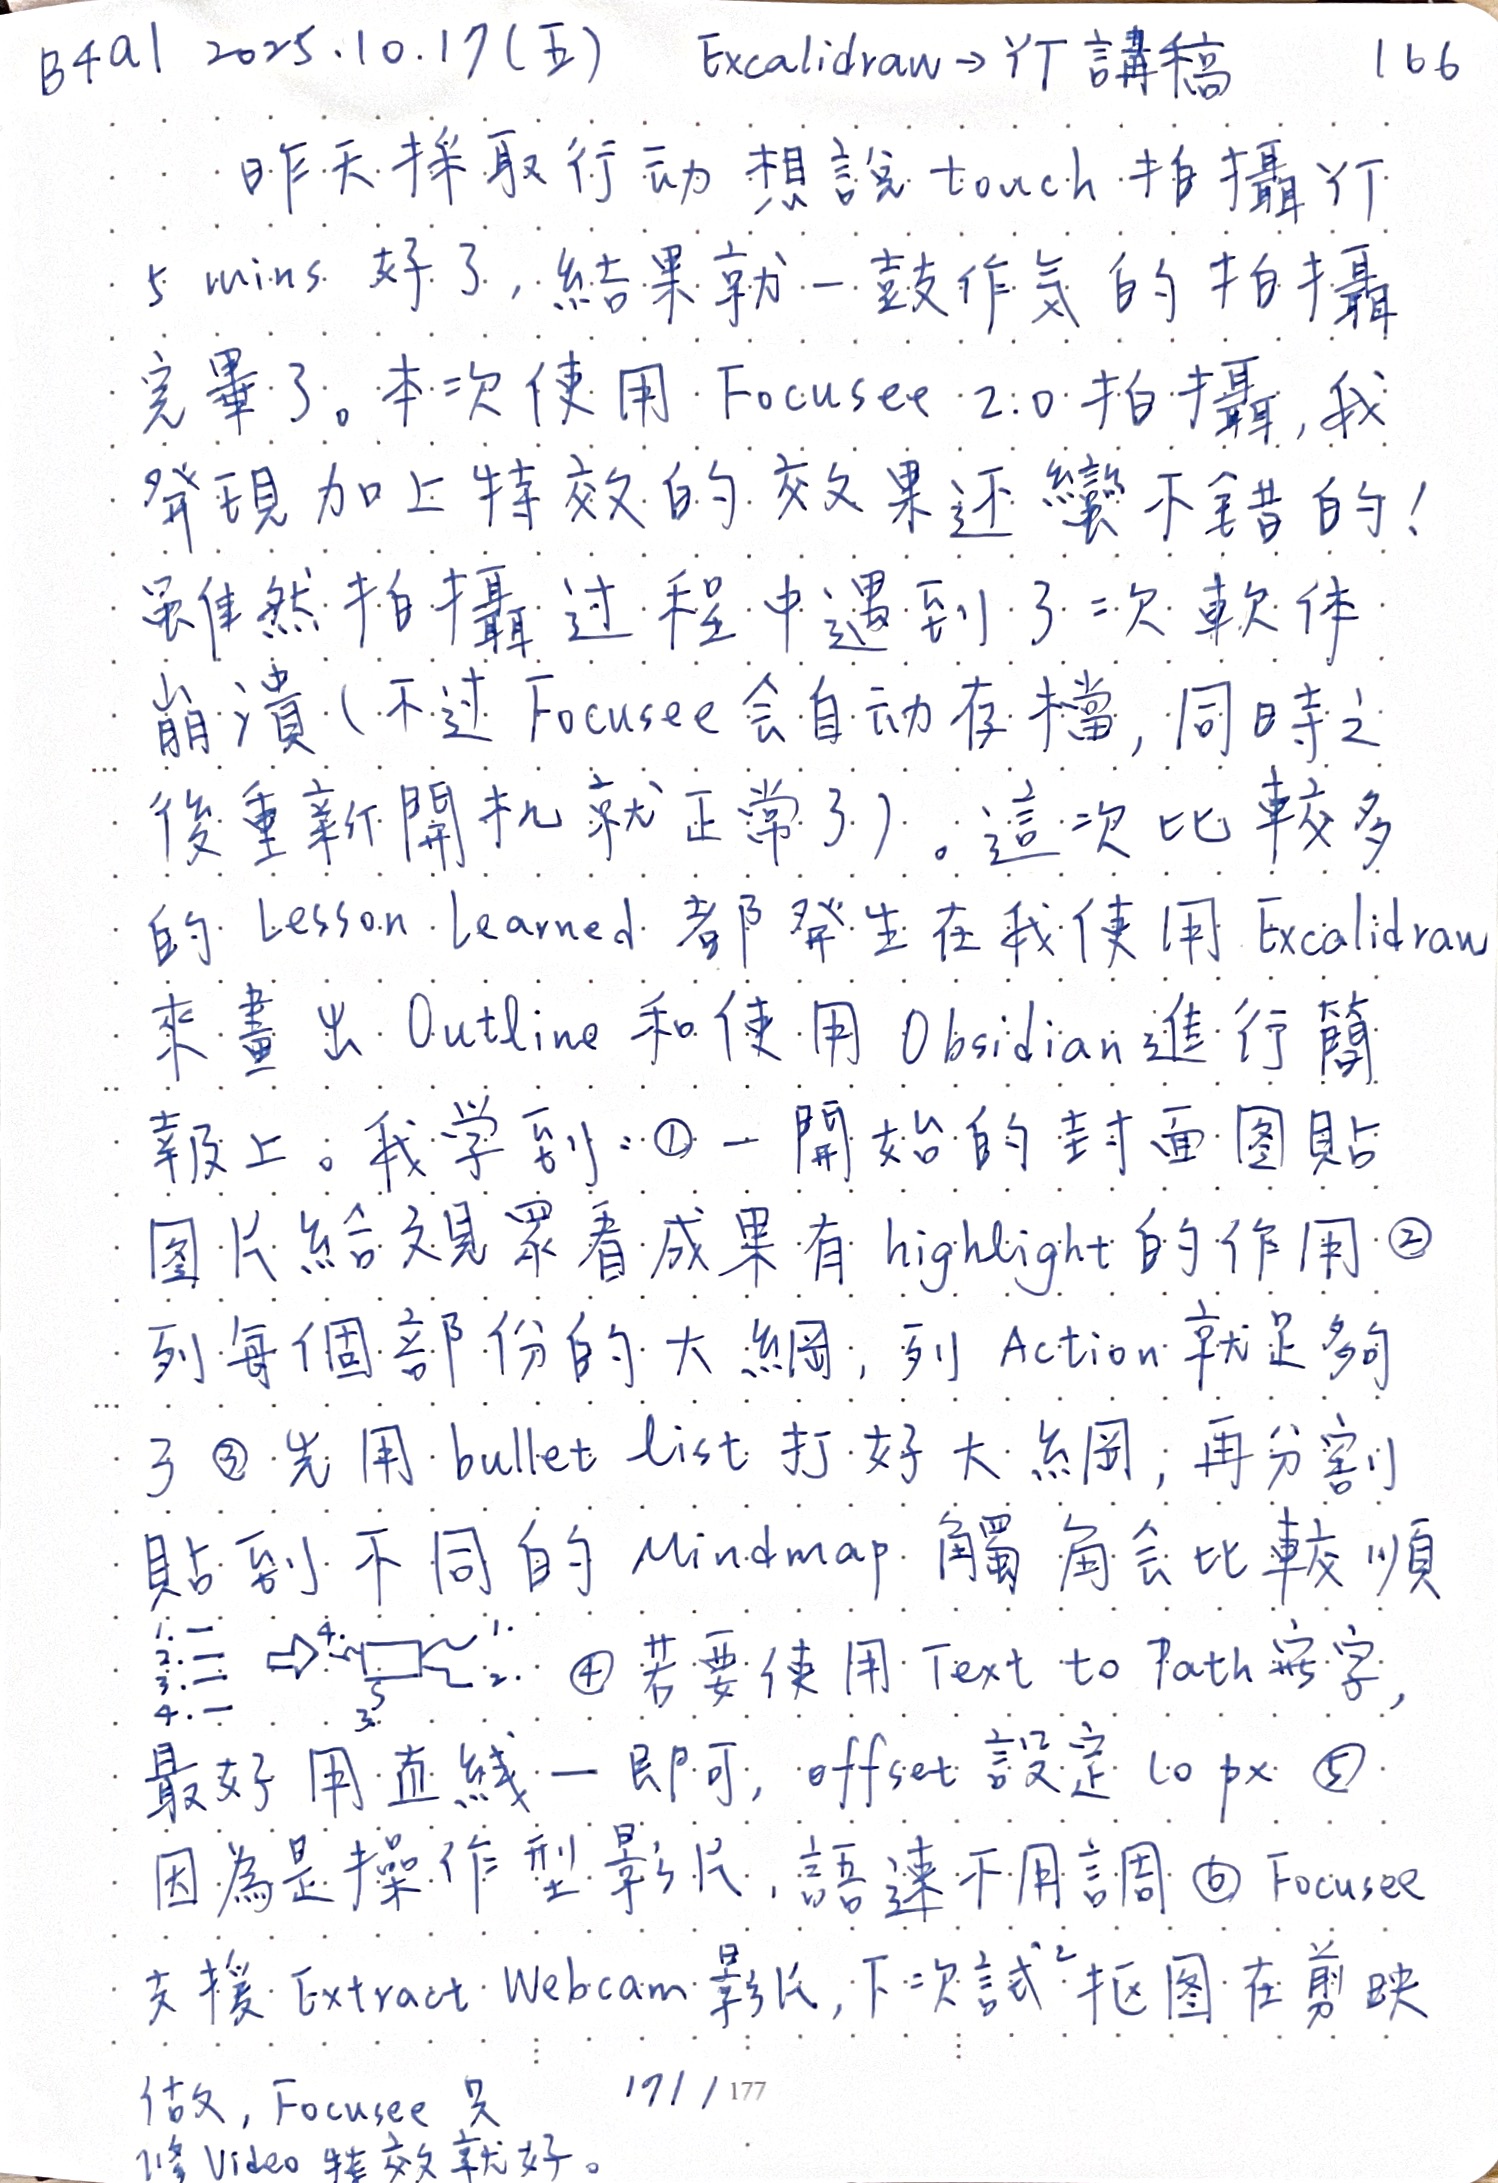 B4a1 2025.10.17(五) Excalidraw→YT講稿 166
昨天採取行动想說touch拍攝YT
5 mins 好了,結果就一鼓作気的拍攝
完畢了。本次使用Focusee 2.0拍攝,我
發現加上特效的效果还蠻不錯的!
雖然拍攝过程中遇到了二次軟体
崩潰(不过Focusee会自动存檔,同時之
後重新開机就正常了)。這次比較多
的 Lesson Learned 都發生在我使用Excalidraw
來畫出Outline和使用Obsidian進行簡
報上。我学到:①一開始的封面图貼
图片給观眾看成果有highlight的作用②
列每個部份的大綱,列Action就足夠
了③先用bullet list打好大綱,再分割
貼到不同的Mindmap觸角会比較順
1.一 2.二 3.二 4.一 ⇨ 4. 1. 2. 3. ④若要使用Text to Path嵌字,
最好用直綫一即可,offset設定10px⑤
因為是操作型影片,語速不用調⑥Focusee
支援Extract Webcam影片,下次試²抠图在剪映
做,Focusee只 171/177
修Video特效就好。